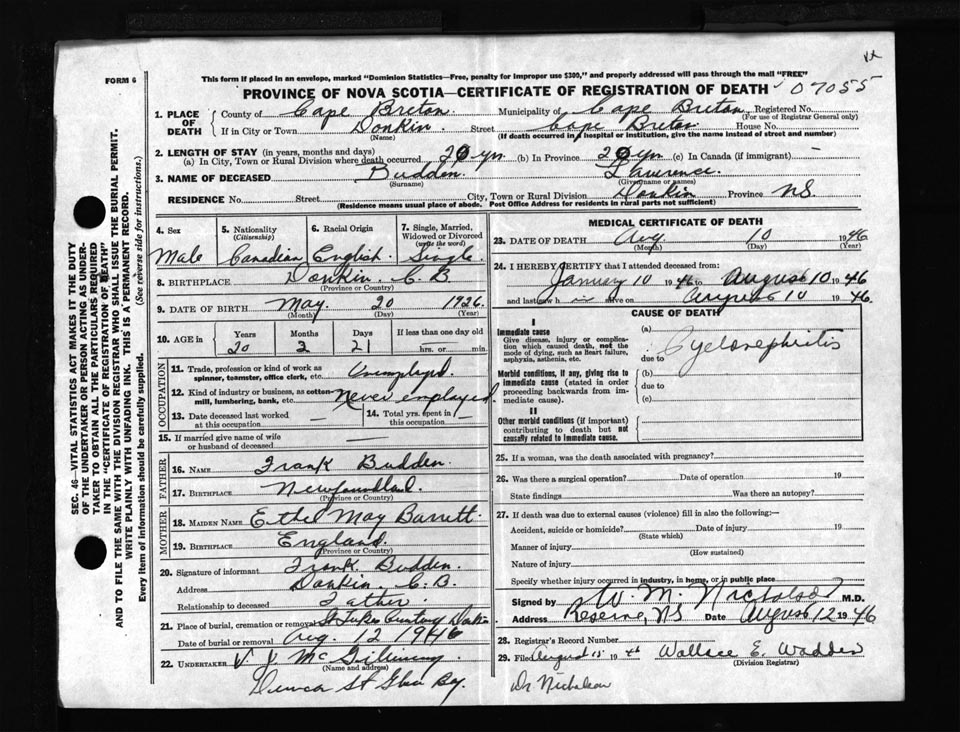 FORM 6
This form if placed in an envelope, marked "Dominion Statistics—Free, penalty for improper use $300," and properly addressed will pass through the mail "FREE"
PROVINCE OF NOVA SCOTIA—CERTIFICATE OF REGISTRATION OF DEATH 07055
1. PLACE OF DEATH
County of Cape Breton Municipality of Cape Breton Registered No.
(For use of Registrar General only)
If in City or Town Donkin Street Cape Breton House No.
(Name) (If death occurred in a hospital or institution, give the name instead of street and number)
2. LENGTH OF STAY (in years, months and days)
(a) In City, Town or Rural Division where death occurred 20 yrs (b) In Province 20 yrs (c) In Canada (if immigrant) —
3. NAME OF DECEASED Budden. Lawrence.
(Surname) (Given name or names)
RESIDENCE No. Street City, Town or Rural Division Donkin Province NS
(Residence means usual place of abode. Post Office Address for residents in rural parts not sufficient)
4. Sex
Male
5. Nationality
(Citizenship)
Canadian
6. Racial Origin
English
7. Single, Married, Widowed or Divorced
(write the word)
Single
8. BIRTHPLACE Donkin C B
(Province or Country)
9. DATE OF BIRTH May 20 1926
(Month) (Day) (Year)
10. AGE in
Years Months Days If less than one day old
20 2 21 hrs. or min.
OCCUPATION
11. Trade, profession or kind of work as spinner, teamster, office clerk, etc. Unemployed.
12. Kind of industry or business, as cotton-mill, lumbering, bank, etc. Never employed.
13. Date deceased last worked at this occupation —
14. Total yrs. spent in this occupation —
15. If married give name of wife or husband of deceased —
FATHER
16. NAME Frank Budden.
17. BIRTHPLACE Newfoundland.
(Province or Country)
MOTHER
18. MAIDEN NAME May Barrett
19. BIRTHPLACE England
(Province or Country)
20. Signature of informant Frank Budden.
Address Donkin C.B.
Relationship to deceased Father.
21. Place of burial, cremation or removal St Lukes Donkin
Date of burial or removal Aug. 12 1946
22. UNDERTAKER V. J. Mc
(Name and address)
St Glace Bay.
MEDICAL CERTIFICATE OF DEATH
23. DATE OF DEATH Aug 10 1946
(Month) (Day) (Year)
24. I HEREBY CERTIFY that I attended deceased from:
January 10 1946 to August 10 1946
and last saw h im alive on August 10 1946
CAUSE OF DEATH
I
Immediate cause
Give disease, injury or complication which caused death, not the mode of dying, such as heart failure, asphyxia, asthenia, etc.
(a)
due to Pyelonephritis
Morbid conditions, if any, giving rise to immediate cause (stated in order proceeding backwards from immediate cause).
(b)
due to
(c)
II
Other morbid conditions (if important) contributing to death but not causally related to immediate cause.
25. If a woman, was the death associated with pregnancy?
26. Was there a surgical operation? Date of operation 19
State findings Was there an autopsy?
27. If death was due to external causes (violence) fill in also the following:—
Accident, suicide or homicide? Date of injury 19
(State which)
Manner of injury
(How sustained)
Nature of injury
Specify whether injury occurred in industry, in home, or in public place
Signed by W. M. Nicholson M.D.
Address Reserve, NS Date August 12 1946
28. Registrar's Record Number
29. Filed August 15 1946 Wallace E. Wadden
(Division Registrar)
Dr Nicholson
SEC. 46—VITAL STATISTICS ACT MAKES IT THE DUTY
OF THE UNDERTAKER OR PERSON ACTING AS UNDER-
TAKER TO OBTAIN ALL THE PARTICULARS REQUIRED
IN THE "CERTIFICATE OF REGISTRATION OF DEATH"
AND TO FILE THE SAME WITH THE DIVISION REGISTRAR WHO SHALL ISSUE THE BURIAL PERMIT.
WRITE PLAINLY WITH UNFADING INK. THIS IS A PERMANENT RECORD.
Every item of information should be carefully supplied. (See reverse side for instructions.)